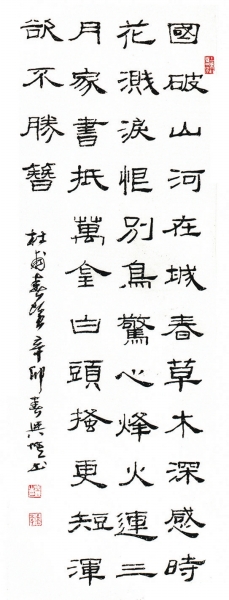 國破山河在城春草木深感時
花濺淚恨別鳥驚心烽火連三
月家書抵萬金白頭搔更短渾
欲不勝簪
杜甫春望辛卯春